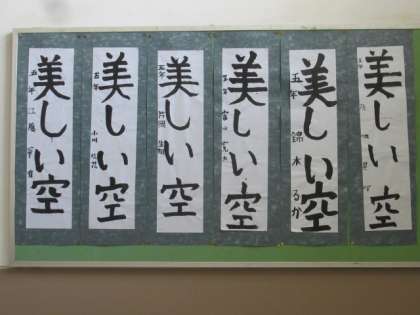 美しい空
五年
美しい空
五年 小川
美しい空
五年
美しい空
五年
美しい空
五年 錦木るか
美しい空
五年